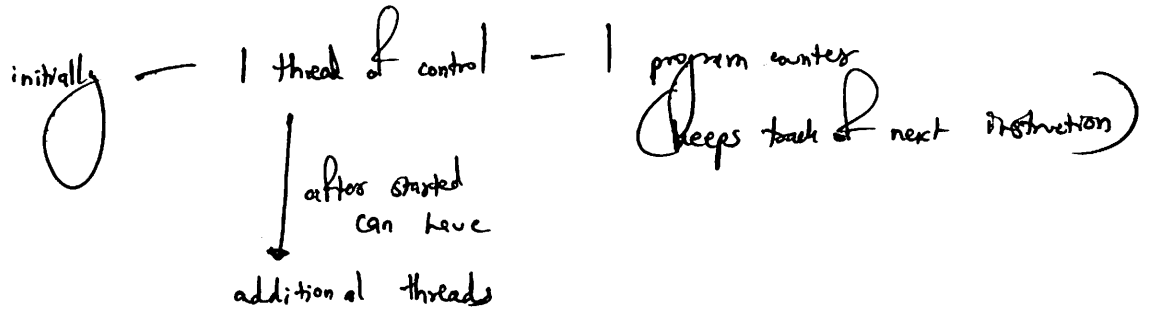 initially — 1 thread of control — 1 program counter
(keeps track of next instruction)
after started
can have
additional threads